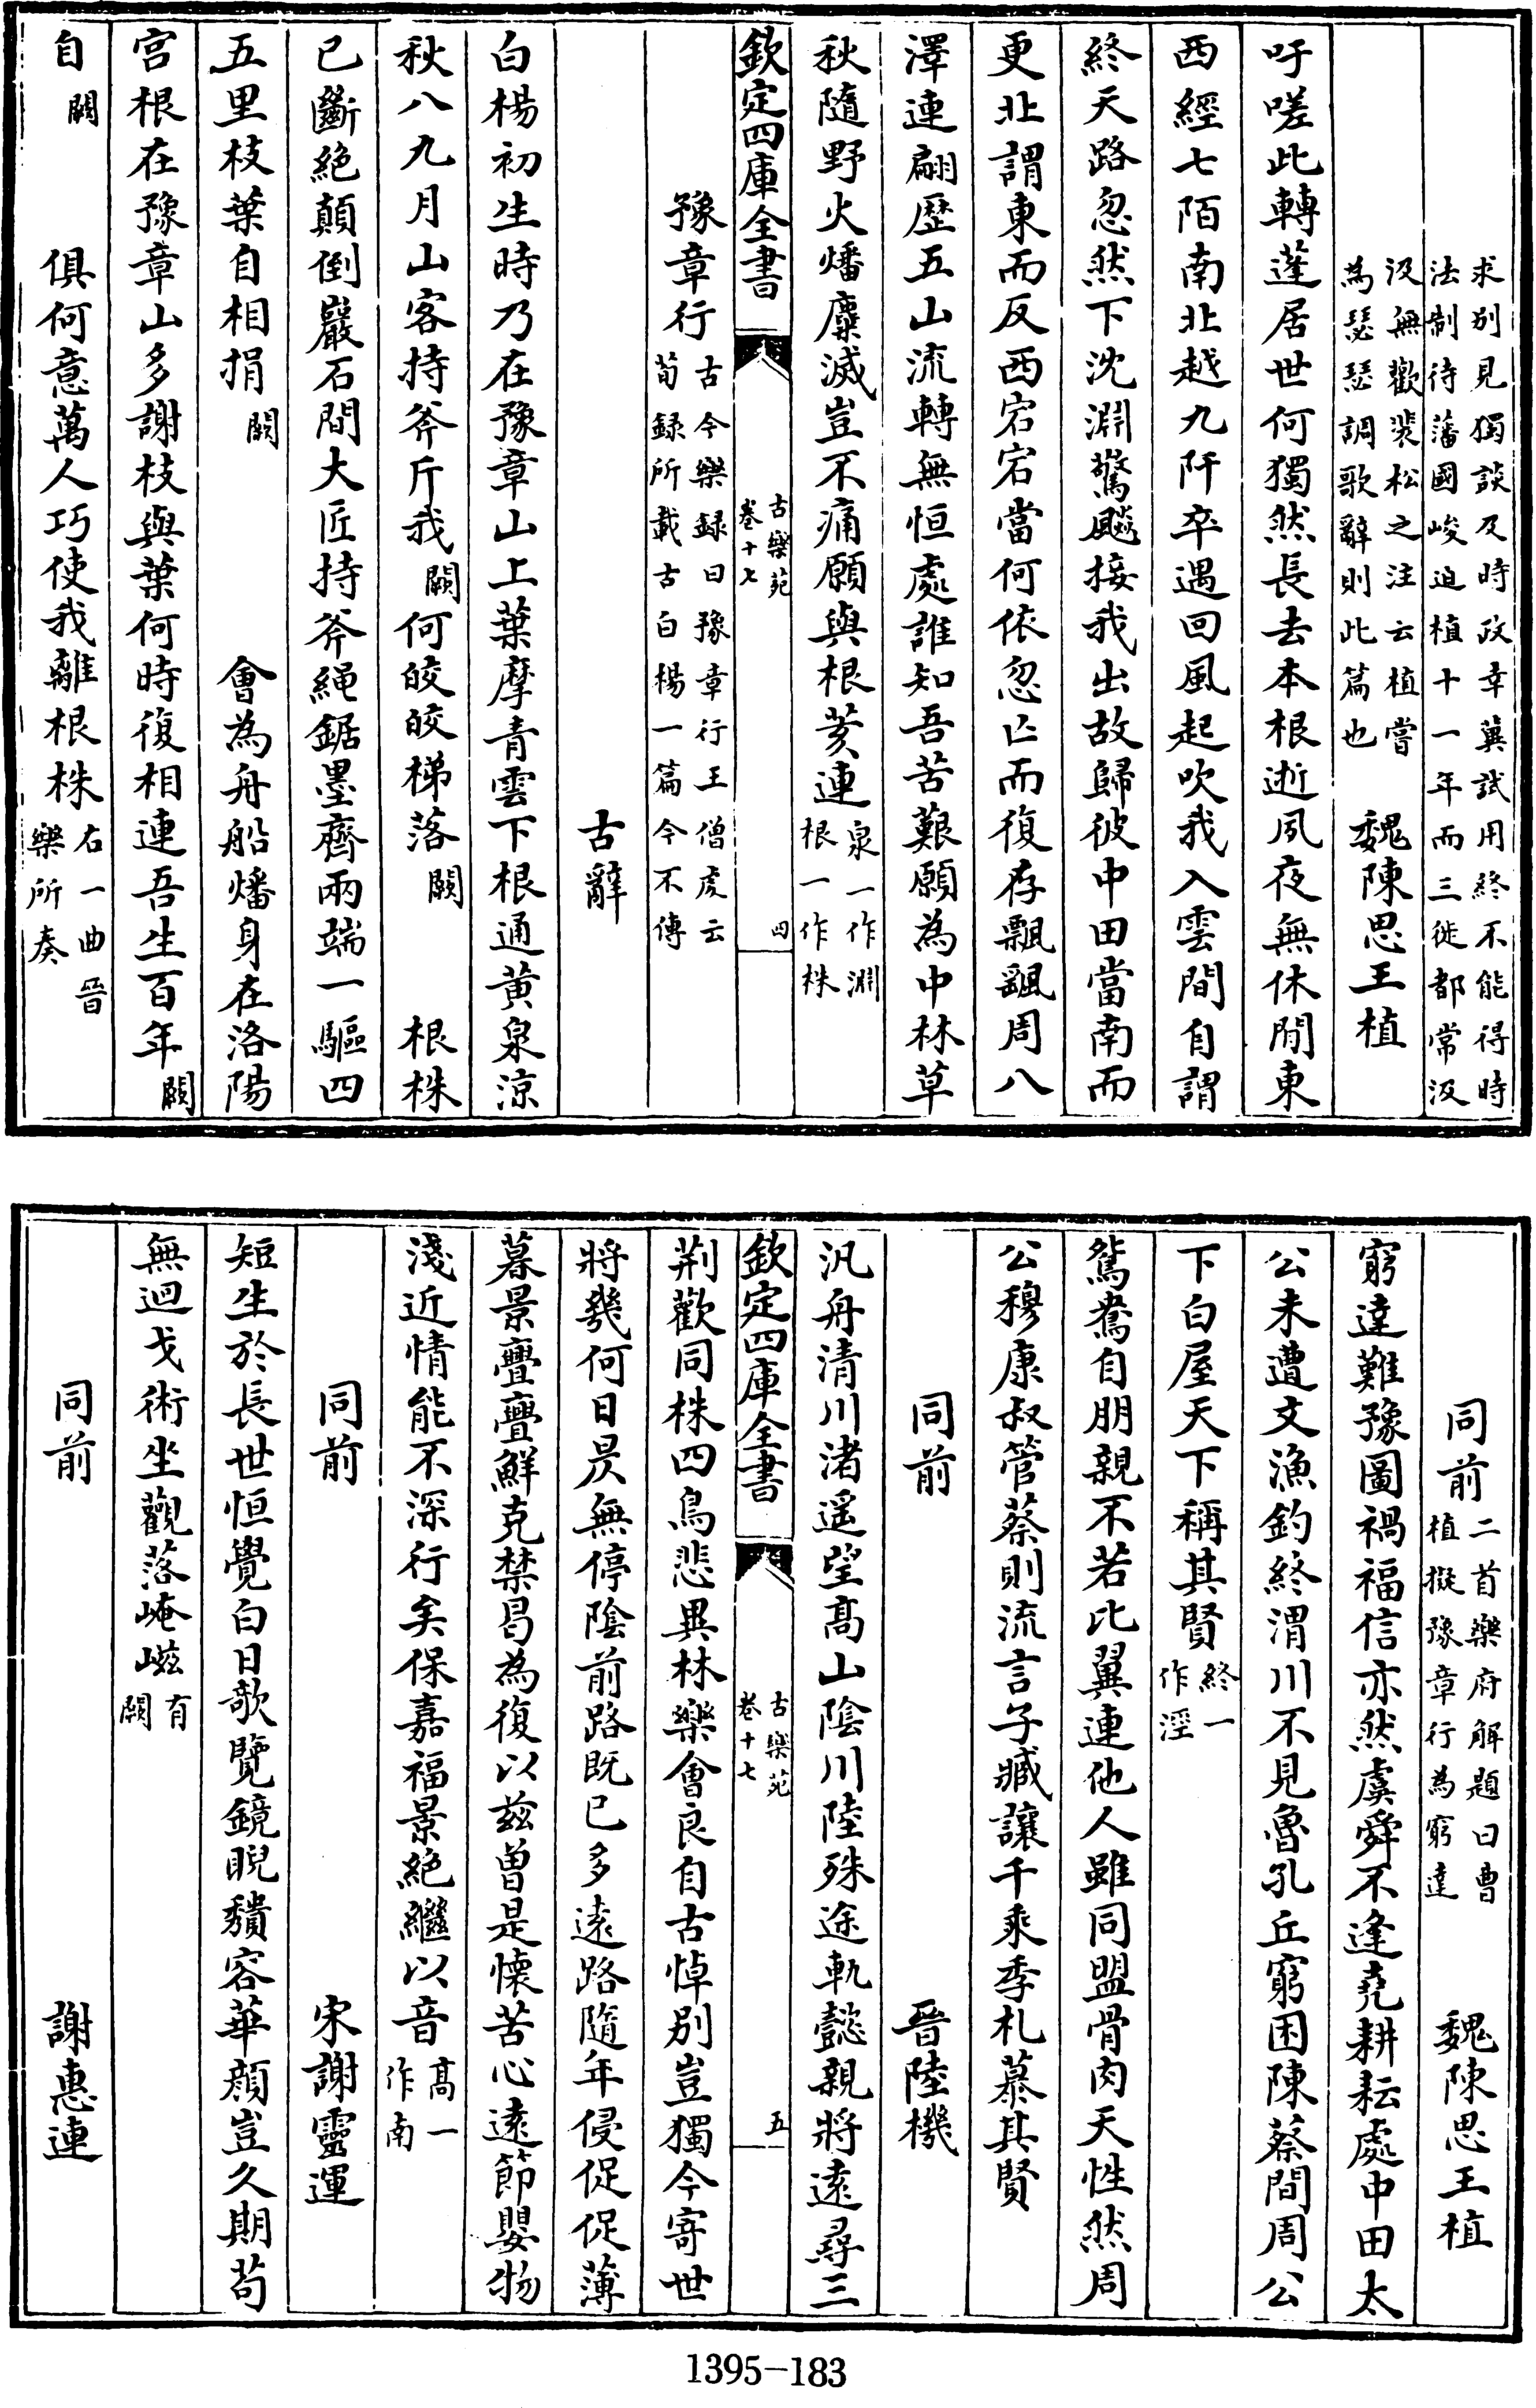 求別見獨談及時政幸冀試用終不能得時
法制待藩國峻迫植十一年而三徙都常汲
汲無歡裴松之注云植嘗
為瑟瑟調歌辭則此篇也　魏陳思王植
吁嗟此轉蓬居世何獨然長去本根逝夙夜無休閒東
西經七陌南北越九阡卒遇回風起吹我入雲間自謂
終天路忽然下沈淵驚飈接我出故歸彼中田當南而
更北謂東而反西宕宕當何依忽亡而復存飄飖周八
澤連翩歴五山流轉無恒處誰知吾苦艱願為中林草
秋隨野火燔麋滅豈不痛願與根荄連泉一作淵
根一作株
欽定四庫全書　古樂苑
卷十七　四
豫章行古今樂録曰豫章行王僧䖍云
荀録所載古白楊一篇今不傳
古辭
白楊初生時乃在豫章山上葉摩青雲下根通黄泉涼
秋八九月山客持斧斤我闕何皎皎梯落闕　根株
已斷絶顛倒巖石間大匠持斧繩鋸墨齊兩端一驅四
五里枝葉自相捐闕　會為舟船燔身在洛陽
宫根在豫章山多謝枝與葉何時復相連吾生百年闕
自闕　俱何意萬人巧使我離根株右一曲晉
樂所奏
同前二首樂府解題曰曹
植擬豫章行為窮達　魏陳思王植
窮達難豫圖禍福信亦然虞舜不逢堯耕耘處中田太
公未遭文漁釣終渭川不見魯孔丘窮困陳蔡間周公
下白屋天下稱其賢終一
作涇
鴛鴦自朋親不若比翼連他人雖同盟骨肉天性然周
公穆康叔管蔡則流言子臧讓千乘季札慕其賢
同前　晉陸機
汎舟清川渚遥望髙山陰川陸殊途軌懿親將逺尋三
欽定四庫全書　古樂苑
卷十七　五
荆歡同株四鳥悲異林樂會良自古悼别豈獨今寄世
將幾何日昃無停陰前路既已多逺路隨年侵促促薄
暮景亹亹鮮克禁曷為復以兹曽是懐苦心逺節嬰物
淺近情能不深行矣保嘉福景絶繼以音髙一
作南
同前　宋謝靈運
短生於長世恒覺白日欹覽鏡睨頽容華顔豈久期苟
無迴戈術坐觀落崦嵫有
闕
同前　謝惠連
1395-183